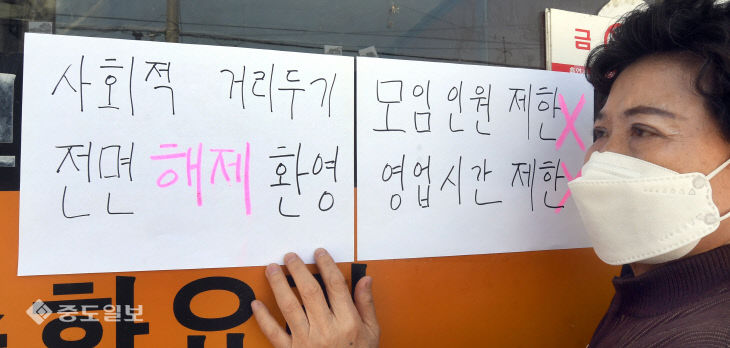 사회적 거리두기
전면 해제 환영
모임인원 제한X
영업시간 제한X
금
중도일보
화요